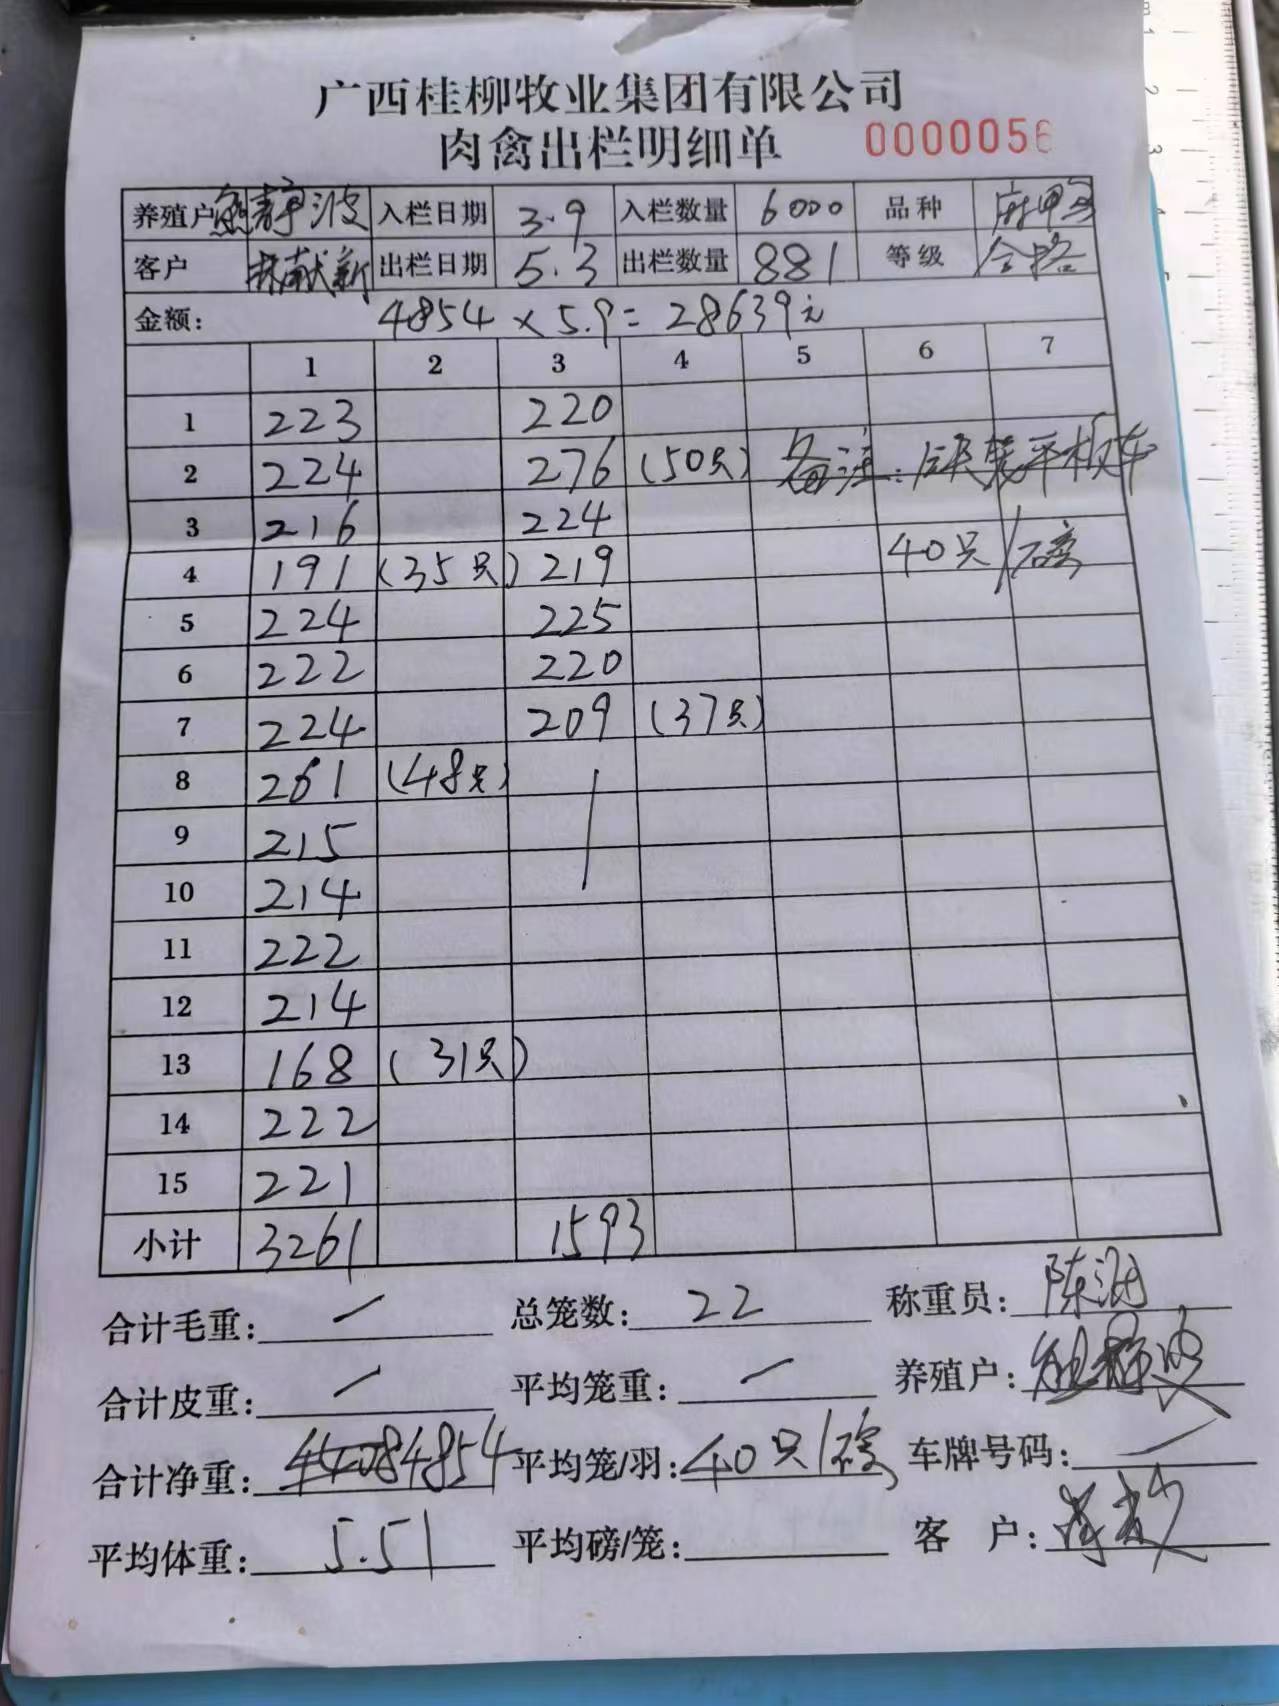 广西桂柳牧业集团有限公司
肉禽出栏明细单 0000056
养殖户 熊静波 入栏日期 3.9 入栏数量 6000 品种 麻鸭
客户 林献新 出栏日期 5.3 出栏数量 881 等级 合格
金额: 4854 × 5.9 = 28639元
1 2 3 4 5 6 7
1 223 220
2 224 276 (50只) 备注: 平板车
3 216 224
4 191 (35只) 219 40只/磅
5 224 225
6 222 220
7 224 209 (37只)
8 261 (48只)
9 215
10 214
11 222
12 214
13 168 (31只)
14 222
15 221
小计 3261 1593
合计毛重: 总笼数: 22 称重员: 陈润
合计皮重: 平均笼重: 养殖户:
合计净重: 4854 平均笼/羽: 40只/磅 车牌号码:
平均体重: 5.51 平均磅/笼: 客 户: